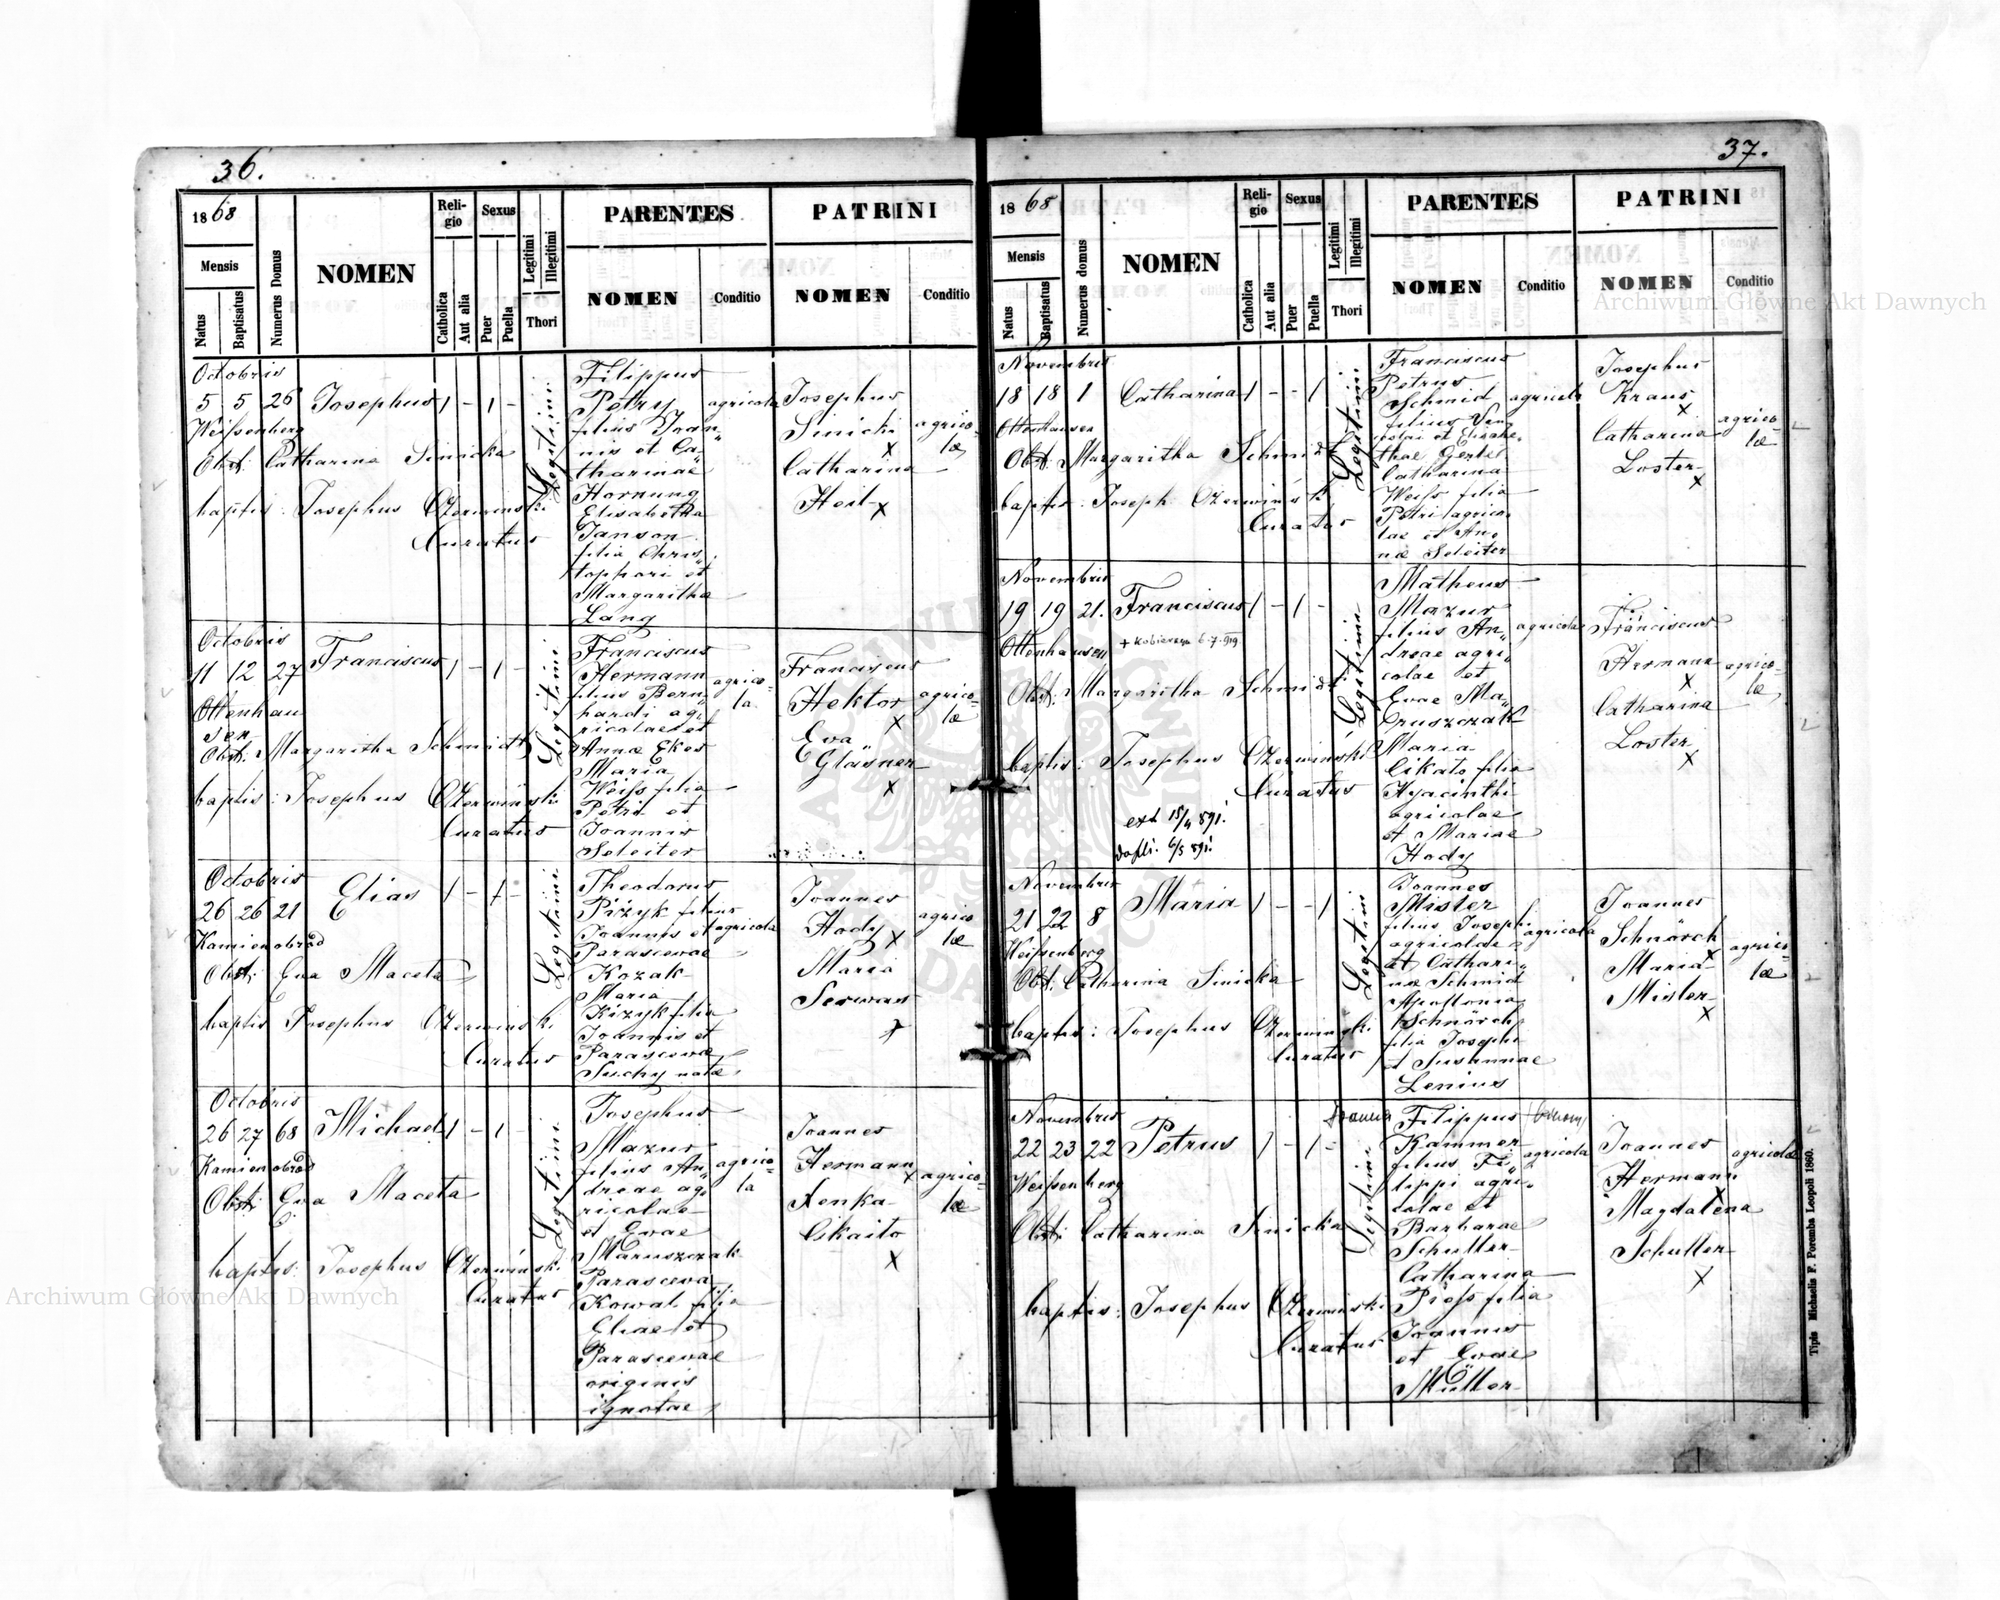 36.
1868
Mensis
Natus
Baptisatus
Numerus Domus
NOMEN
Religio
Catholica
Aut alia
Sexus
Puer
Puella
Legitimi
Illegitimi
Thori
PARENTES
NOMEN
Conditio
PATRINI
NOMEN
Conditio
Octobris
5 5 26 Josephus 1 - 1 -
Weißenberg
Obst. Catharina Sinicka
baptis: Josephus Czerwinski
Curatus
Legitimi
Filippus
Petry
filius Joan„
nis et Ca„
tharinae
Hornung
Elisabetha
Janson
filia Chris„
tophori et
Margaritha
Lang
agricola
Josephus
Sinicki
x
Catharina
Heil x
agrico-
læ
Octobris
11 12 27 Franciscus 1 - 1 -
Ottenhau
sen
Obst. Margaritha Schmidt
baptis: Josephus Czerwinski
Curatus
Legitimi
Franciscus
Hermann
filius Bern„
hardi ag„
ricolae et
Annæ Ekes
Maria
Weiss filia
Petri et
Joannis
Seleiter
agrico-
la
Franciscus
Hektor
x
Eva
Gläsner
x
agrico-
læ
Octobris
26 26 21 Elias 1 - 1 -
Kamienobród
Obst: Eva Maceta
baptis Josephus Czerwinski
Curatus
Legitimi
Theodorus
Pizyk filius
Joannis et
Parascevae
Kozak
Maria
Kizyk filia
Joannis et
Parascevæ
Suchy natæ
agricola
Joannes
Hody x
Maria
Serwan
x
agrico
læ
Octobris
26 27 68 Michael 1 - 1 -
Kamienobród
Obst: Eva Maceta
baptis: Josephus Czerwiński
Curatus
Legitimi
Josephus
Mazur
filius An„
dreae ag„
ricolae
et Evae
Maruszczak
Parasceva
Kowal filia
Eliae et
Parascevae
originis
ignotae
agrico-
la
Joannes
Hermann
x
Xenka
Cikaito
x
agrico-
læ
37.
1868
Mensis
Natus
Baptisatus
Numerus domus
NOMEN
Religio
Catholica
Aut alia
Sexus
Puer
Puella
Legitimi
Illegitimi
Thori
PARENTES
NOMEN
Conditio
PATRINI
NOMEN
Conditio
Novembris
18 18 1 Catharina 1 - - 1
Ottenhausen
Obst. Margaritha Schmidt
baptis: Joseph Czerwiński
Curatus
Legitimi
Franciscus
Petrus
Schmid
Elisabe„
thae Gerbel
Catharina
Weiss filia
Petri agrico„
lae et An„
næ Seleiter
agricola
Josephus
Kraus
x
Catharina
Loster
x
agrico-
læ
Novembris
19 19 21. Franciscus 1 - 1 -
Ottenhausen
+ Kobierzyn 6.7.919
Obst: Margaritha Schmidt
baptis: Josephus Czerwiński
Curatus
ext 15/4 891.
6/5 891.
Legitimi
Matheus
Mazur
filius An„
dreae agri„
colae et
Evae Ma„
ruszczak
Maria
Cikato filia
Hyacinthi
agricolae
et Mariae
Hody
agricola
Franciscus
Hermann
x
Catharina
Loster
x
agrico-
læ
Novembris
21 22 8 Maria 1 - - 1
Weißenberg
Obst: Catharina Sinicka
baptis: Josephus Czerwinski
Curatus
Legitimi
Joannes
Mister
filius Josephi
agricolae
et Cathari„
næ Schmid
Apollonia
Schnörch
filia Josephi
et Susannae
Lenius
agricola
Joannes
Schnörch
x
Maria
Mister
x
agrico-
læ
Novembris
22 23 22 Petrus 1 - 1 -
Weißenberg
Obst: Catharina Sinicka
baptis: Josephus Czerwinski
Curatus
Legitimi
Filippus
Kammer
filius Fi„
lippi agri„
colae et
Barbarae
Schutter
Catharina
Piess filia
Joannis
et Evae
Müller
agricola
Joannes
Hermann
x
Magdalena
Schutter
x
agricolæ
Tipis Michaelis F. Poremba Leopoli 1860.
Archiwum Główne Akt Dawnych
Archiwum Główne Akt Dawnych